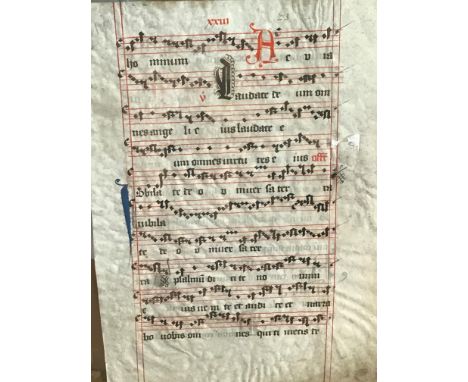 xxiii
ho minum A e v ia
v Laudate de um om
nes ange li e ius laudate e
um omnes virtu tes e ius offe
Iubila te de o v niver sa ter ra
iubila
te de o v niver sa ter
ra psalmū di ci te no mini
e ius ve ni te et audi te et narra
bo vobis om nes qui timetis de